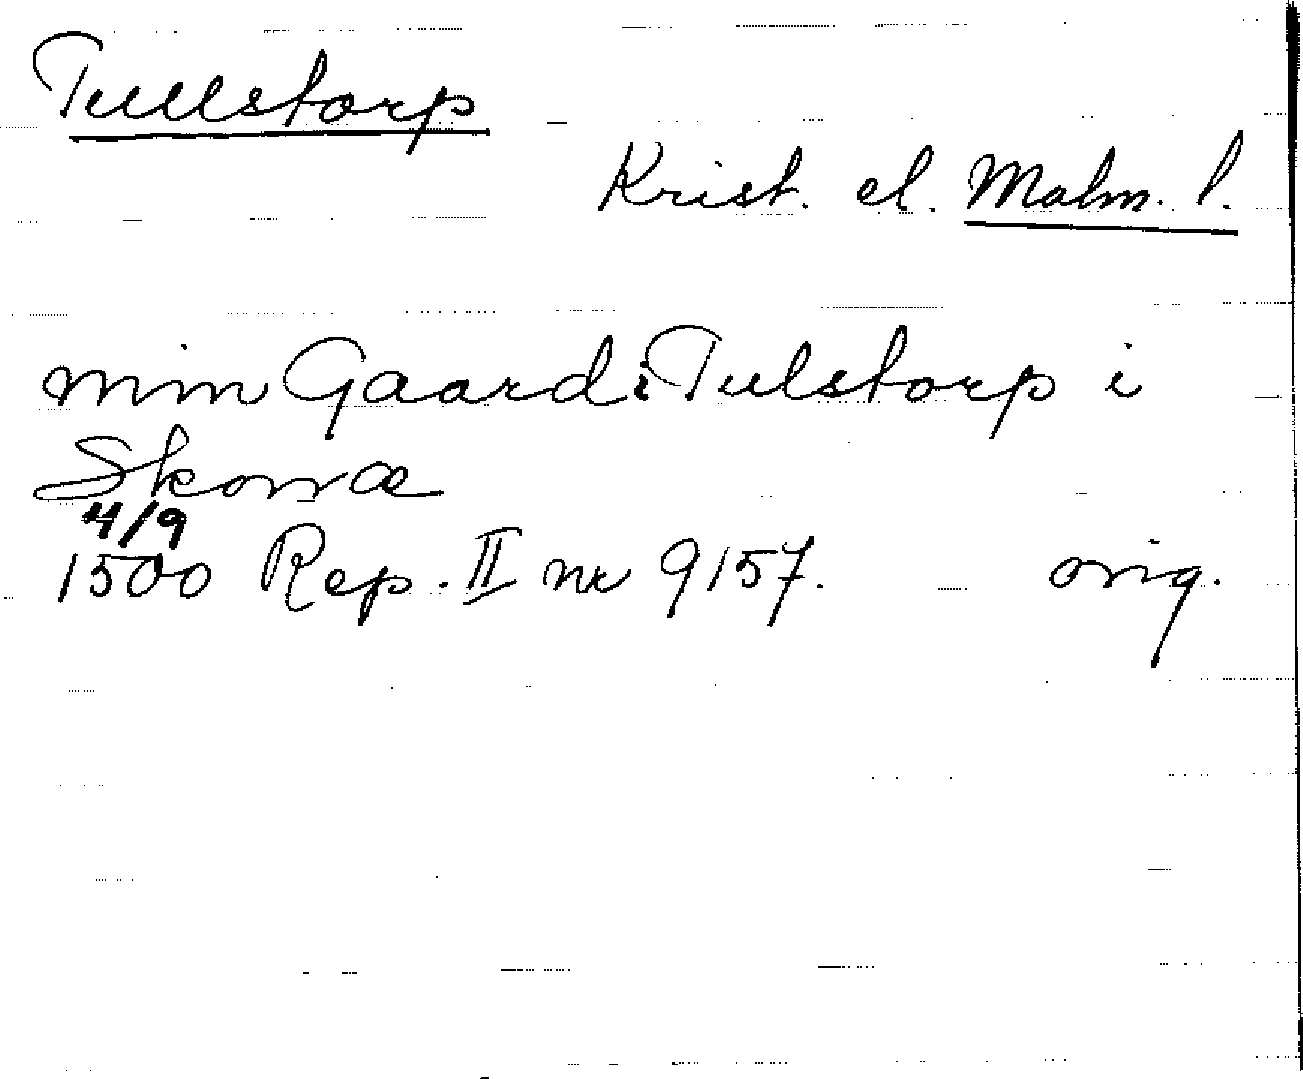 Tullstorp
Krist. el. Malm. l.
min Gaard i Tulstorp i
Skonæ
4/9
1500 Rep. II nr 9157. orig.